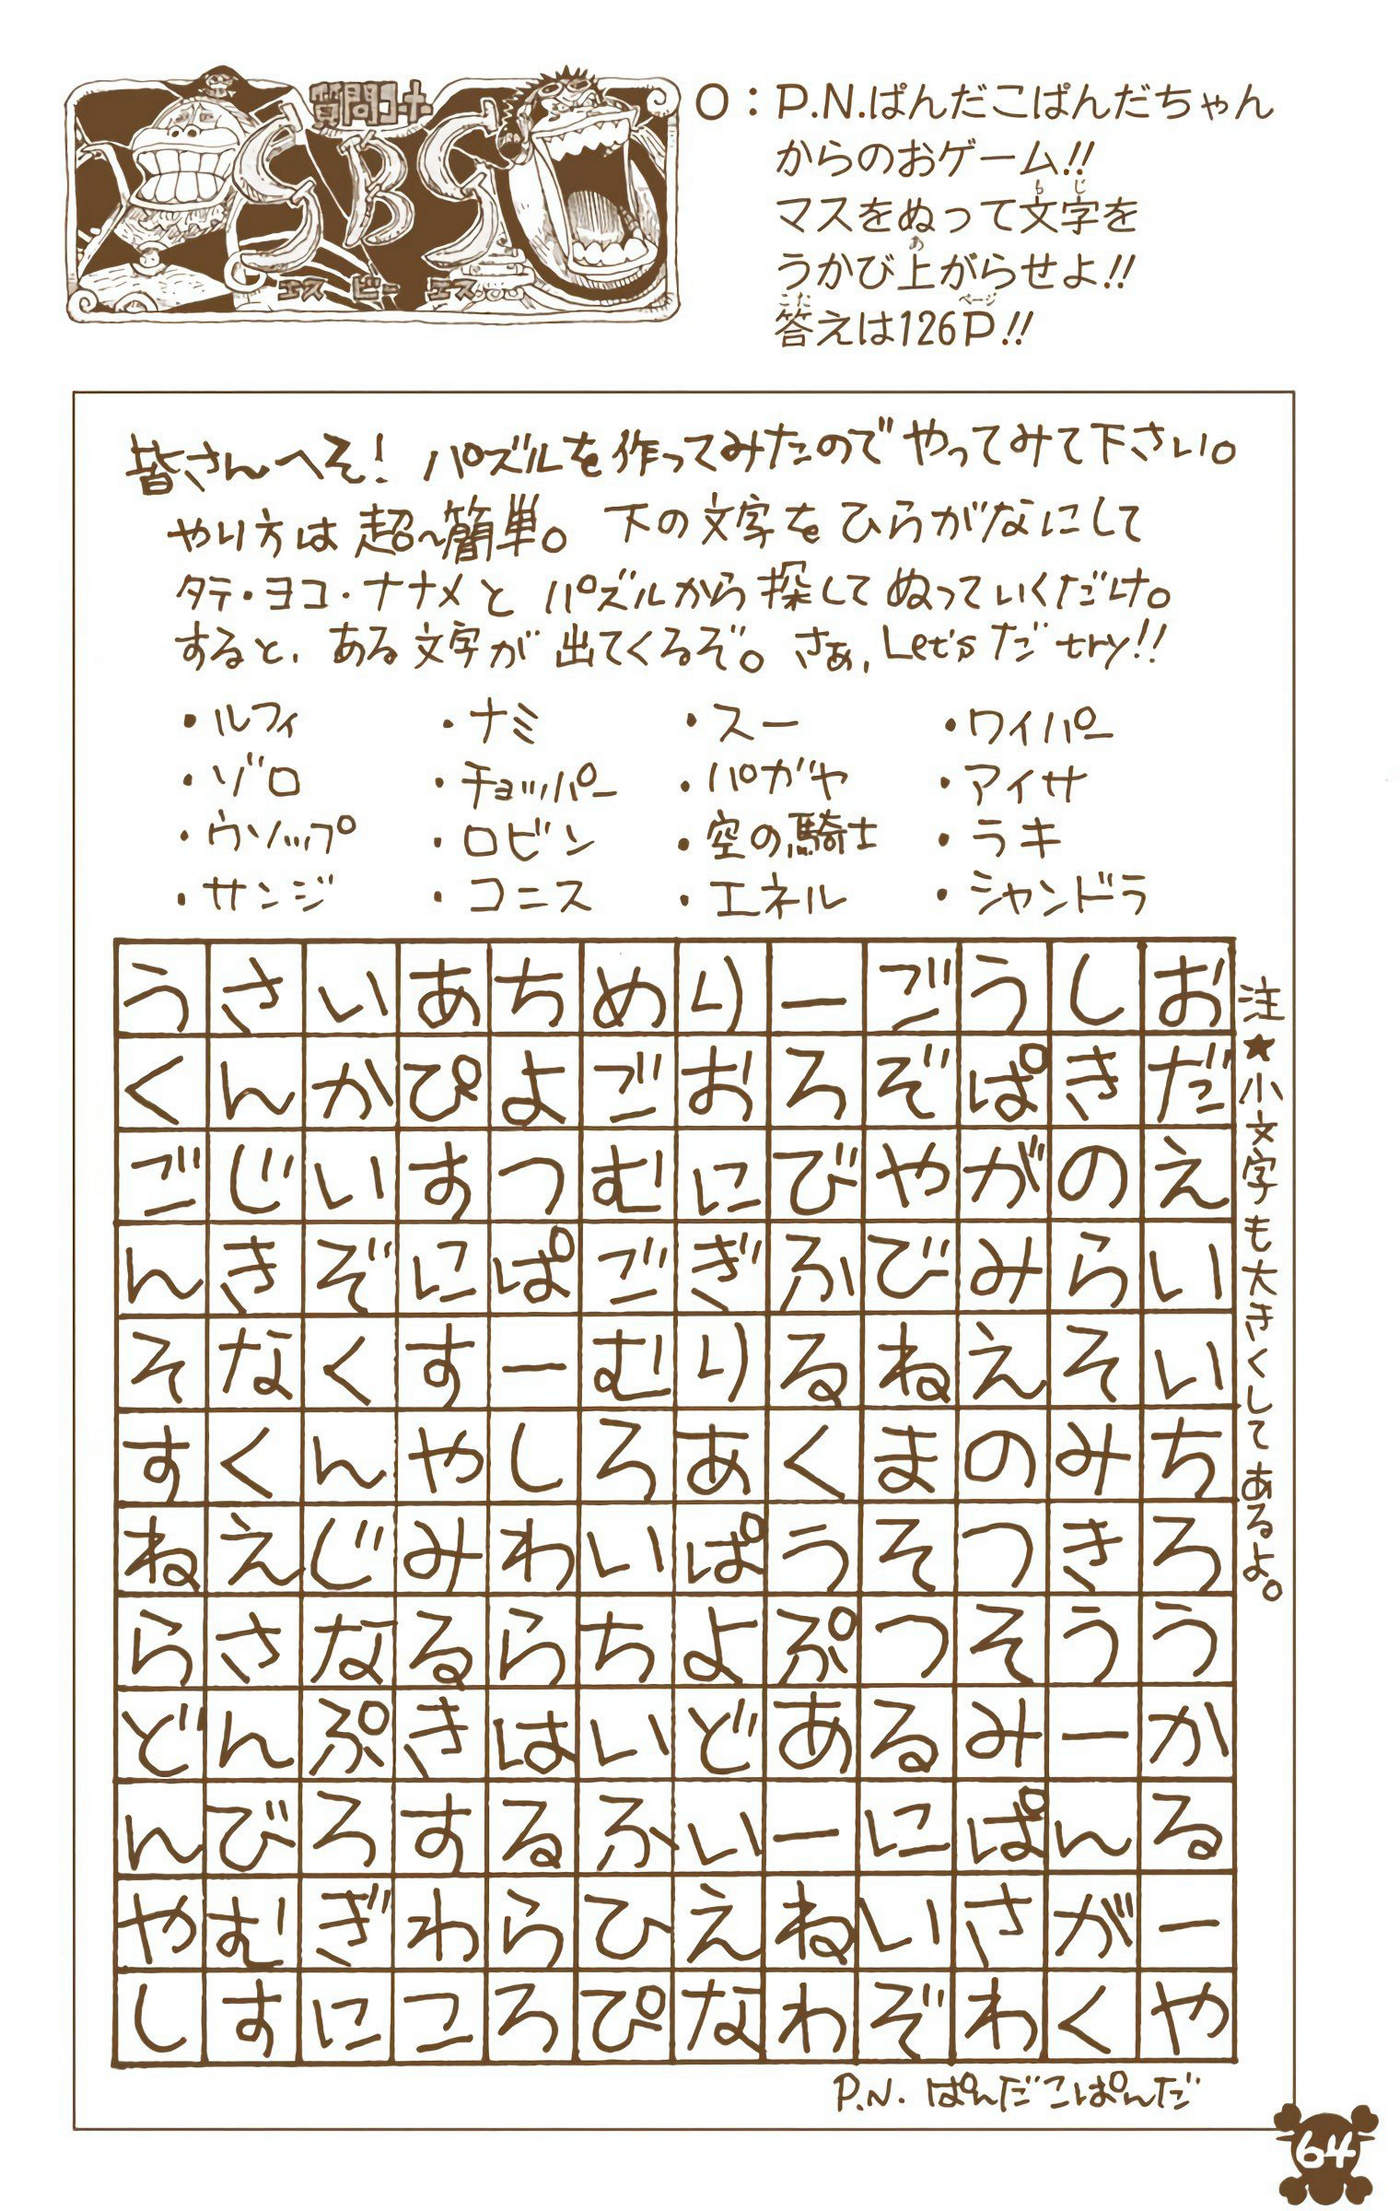 質問コーナー
SBS
エス ビー エス
O：P.N.ぱんだこぱんだちゃん
からのおゲーム!!
マスをぬって文字を
うかび上がらせよ!!
答えは126P!!
皆さんへそ! パズルを作ってみたのでやってみて下さい。
やり方は超〜簡単。下の文字をひらがなにして
タテ・ヨコ・ナナメとパズルから探してぬっていくだけ。
すると、ある文字が出てくるぞ。さぁ、Let'sだtry!!
・ルフィ ・ナミ ・スー ・ワイパー
・ゾロ ・チョッパー ・パガヤ ・アイサ
・ウソップ ・ロビン ・空の騎士 ・ラキ
・サンジ ・コニス ・エネル ・シャンドラ
うさいあちめりーごうしお
くんかぴよごおろぞぱきだ
ごじいすつむにびやがのえ
んきぞにぱごぎふびみらい
そなくすーむりるねえそい
すくんやしろあくまのみち
ねえじみわいぱうそつきろ
らさなるらちよぷつそうう
どんぷきはいどあるみーか
んびろするふいーにぱんる
やむぎわらひえねいさがー
しすにころぴなわぞわくや
注★小文字も大きくしてあるよ。
P.N. ぱんだこぱんだ
64